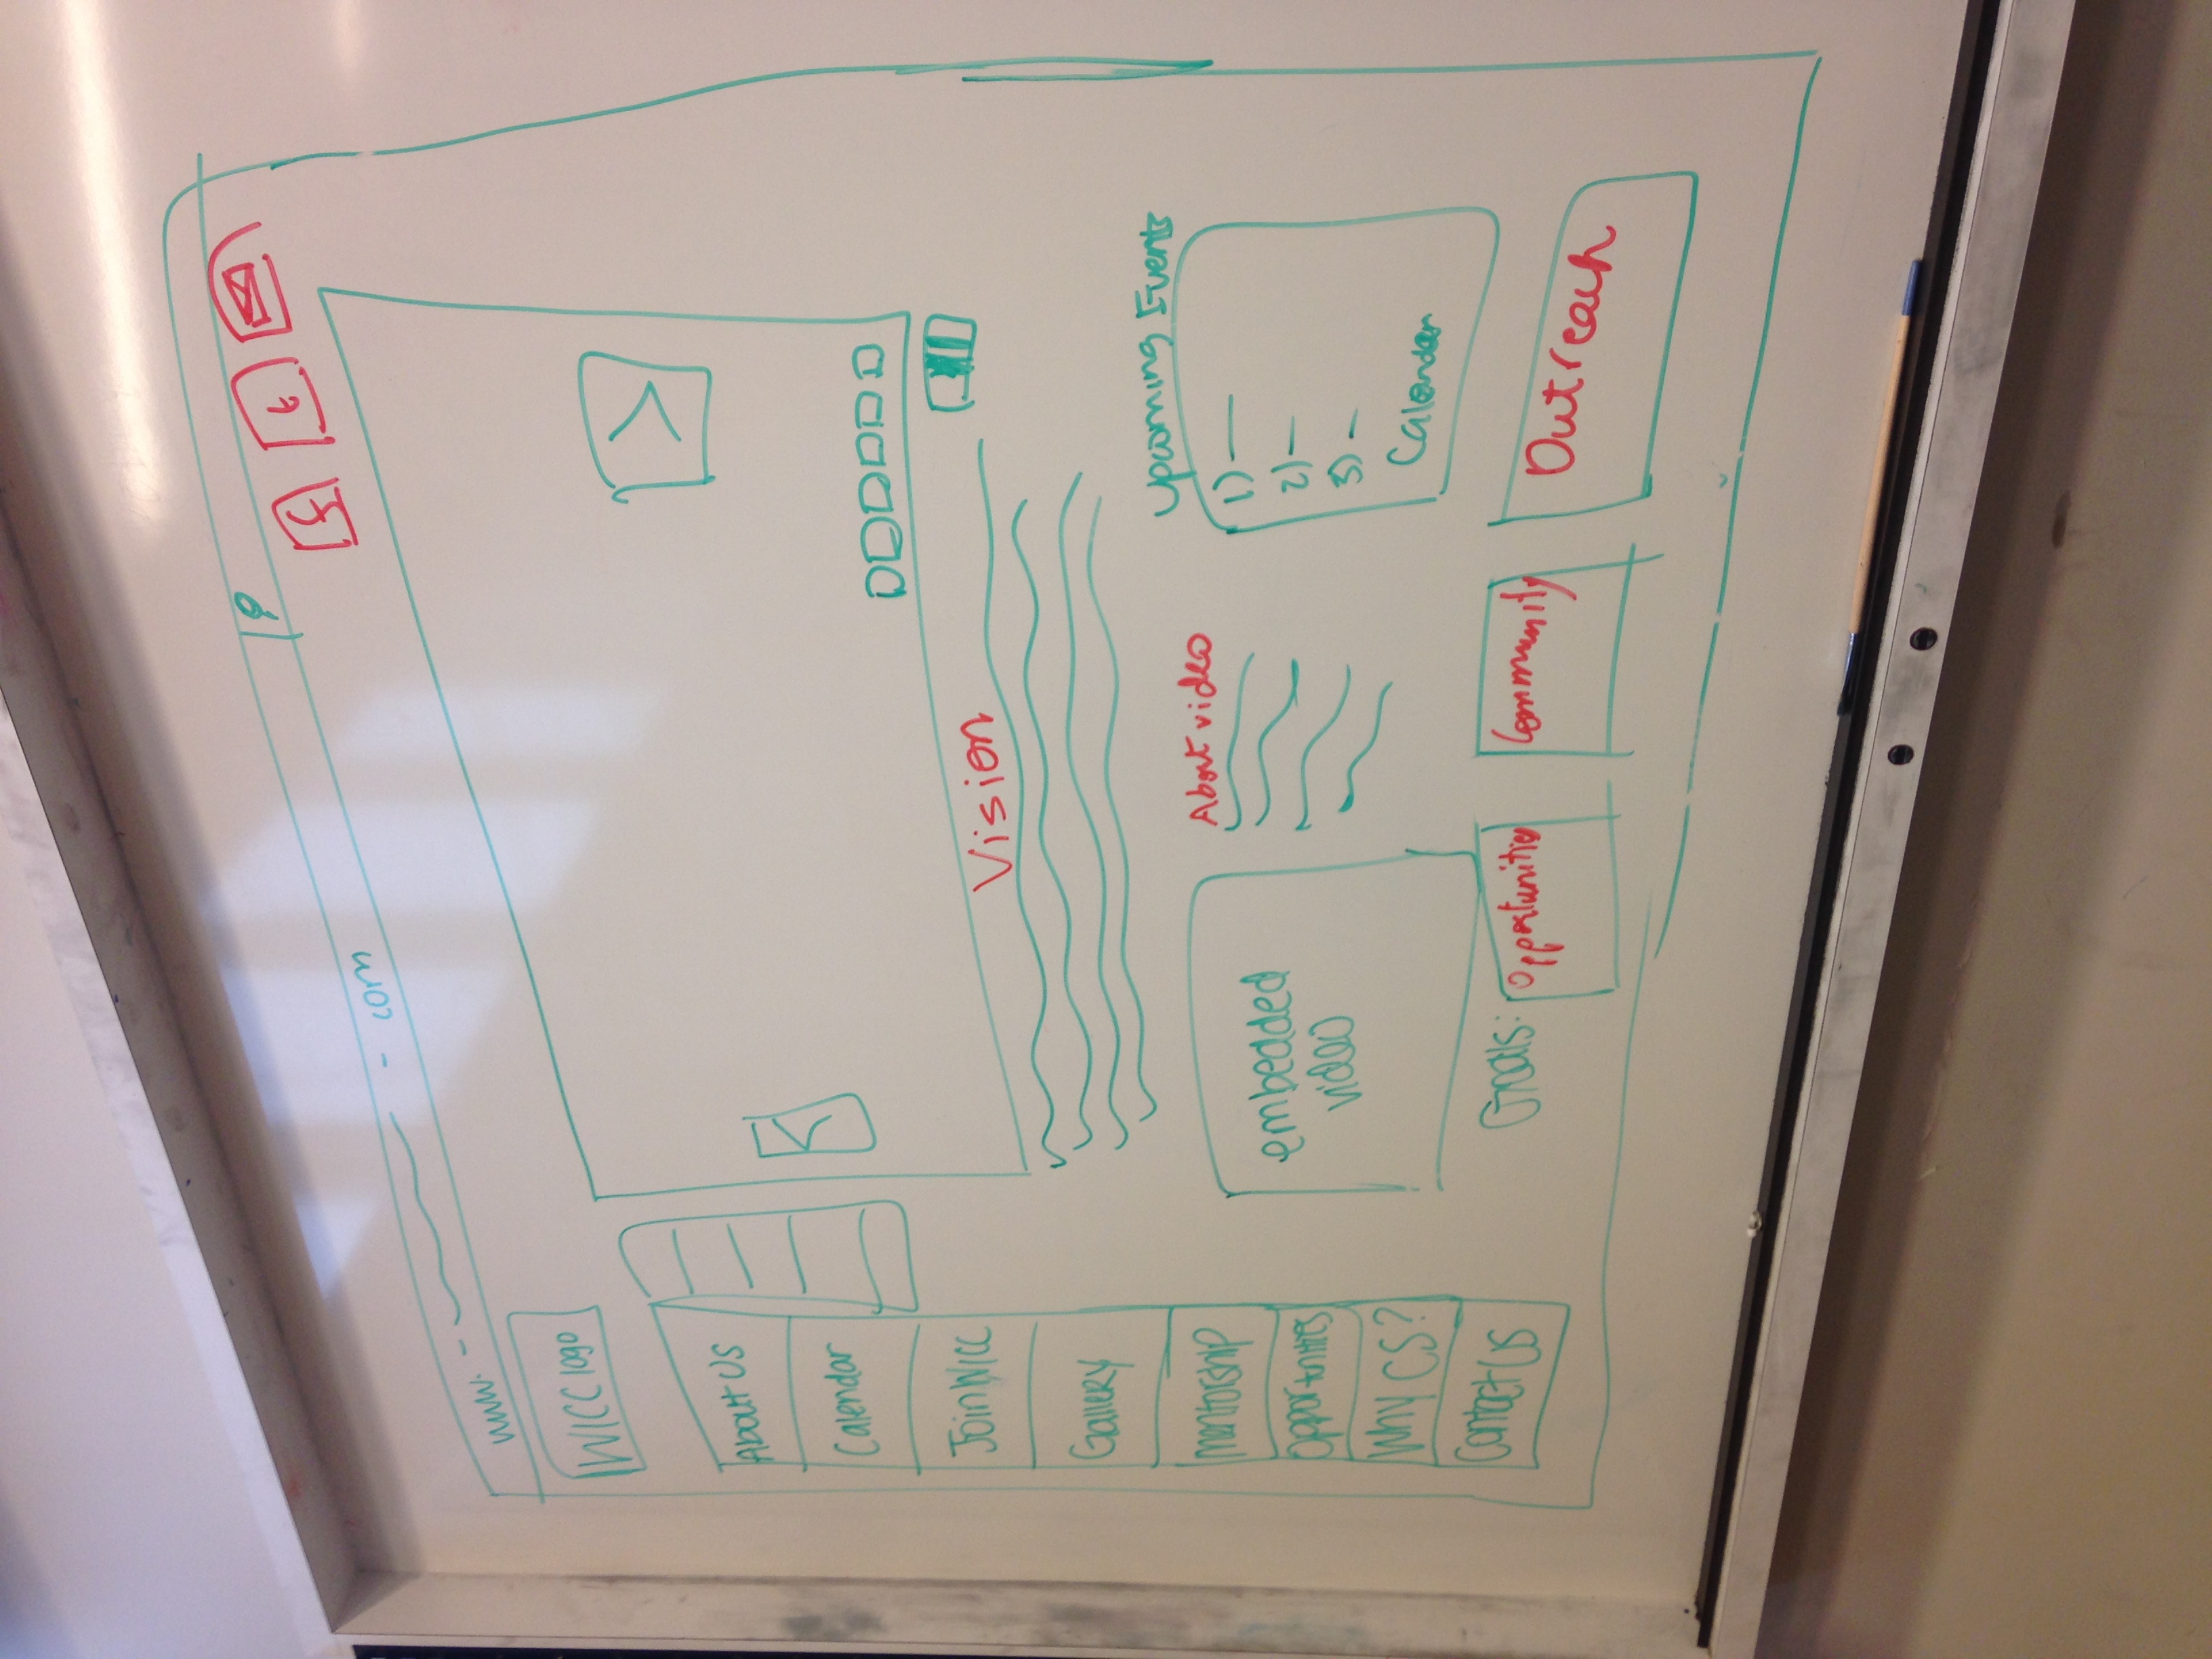 www. - - com
f t
WICC logo
About Us
Calendar
Join WICC
Gallery
Mentorship
Opportunities
Why CS?
Contact Us
Vision
embedded
video
About video
Upcoming Events
1)
2)
3)
Calendar
Goals:
Opportunities
Community
Outreach